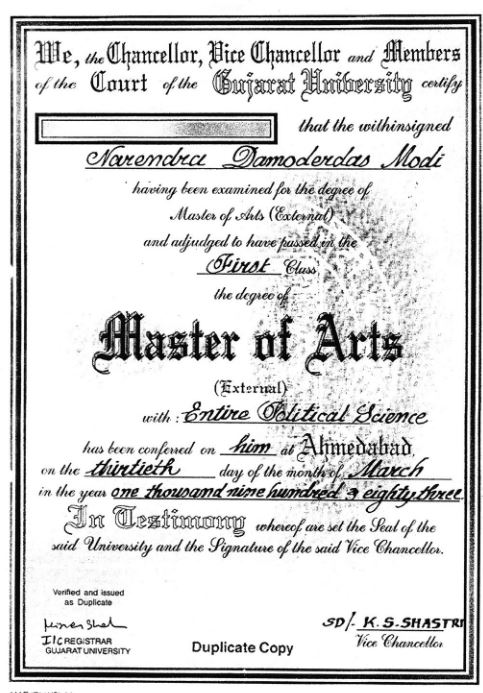 We, the Chancellor, Vice Chancellor and Members
of the Court of the Gujarat University certify
that the withinsigned
Narendra Damoderdas Modi
having been examined for the degree of
Master of Arts (External)
and adjudged to have passed in the
First Class
the degree of
Master of Arts
(External)
with : Entire Political Science
has been conferred on him at Ahmedabad,
on the thirtieth day of the month of March
in the year one thousand nine hundred & eighty three
In Testimony whereof are set the Seal of the
said University and the Signature of the said Vice Chancellor.
Verified and issued
as Duplicate
I/C REGISTRAR
GUJARAT UNIVERSITY
Duplicate Copy
SD/- K. S. SHASTRI
Vice Chancellor